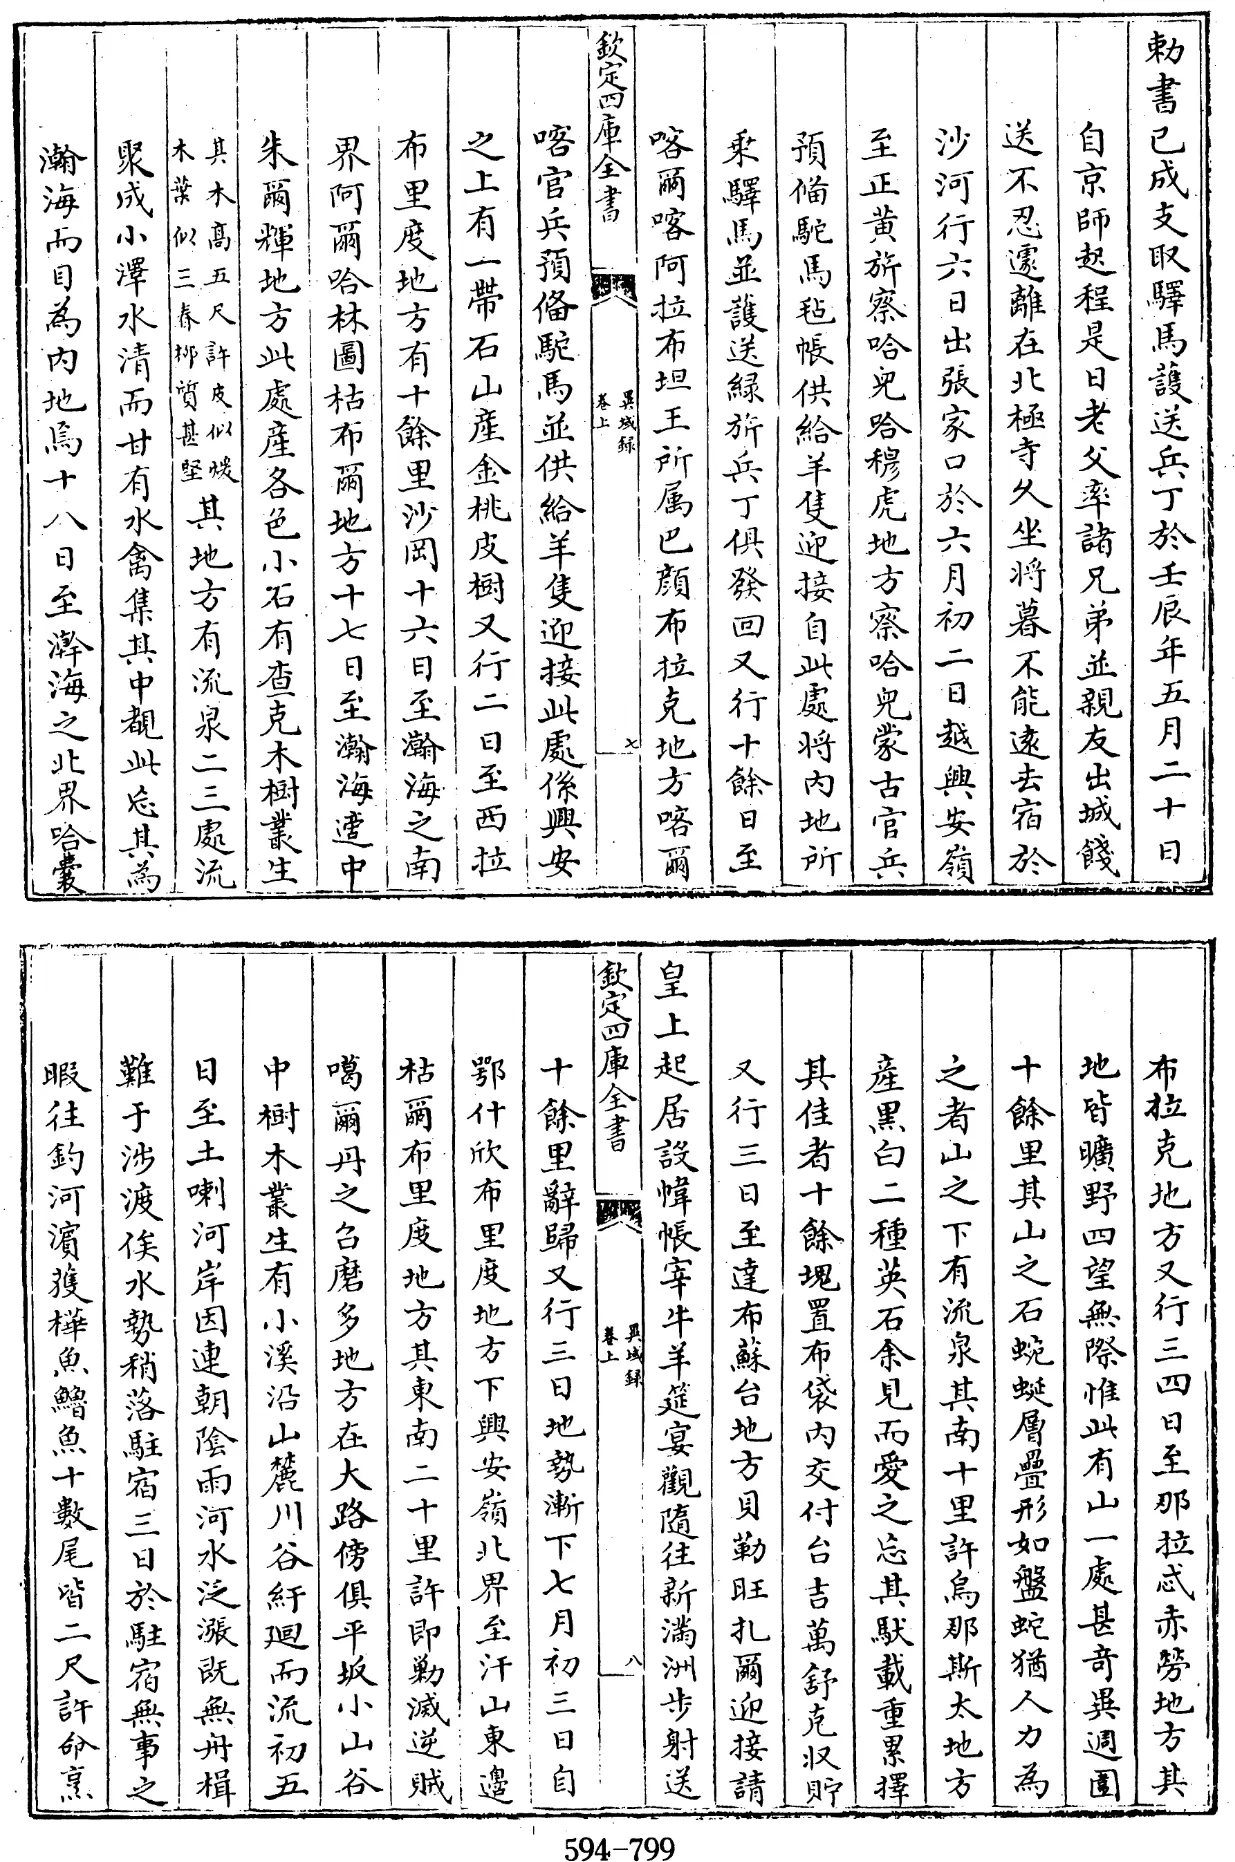 勅書已成支取驛馬護送兵丁於壬辰年五月二十日
自京師起程是日老父率諸兄弟並親友出城餞
送不忍遽離在北極寺久坐將暮不能遠去宿於
沙河行六日出張家口於六月初二日越興安嶺
至正黄旂察哈兒哈穆虎地方察哈兒蒙古官兵
預俻駝馬毡帳供給羊隻迎接自此處將内地所
乗驛馬並護送緑旂兵丁俱發回又行十餘日至
喀爾喀阿拉布坦王所属巴顔布拉克地方喀爾
欽定四庫全書
異域録
卷上
七
喀官兵預俻駝馬並供給羊隻迎接此處係興安
之上有一帶石山産金桃皮樹又行二日至西拉
布里度地方有十餘里沙岡十六日至瀚海之南
界阿爾哈林圖枯布爾地方十七日至瀚海適中
朱爾輝地方此處産各色小石有查克木樹叢生
其木高五尺許皮似煖
木葉似三春柳質甚堅
其地方有流泉二三處流
聚成小澤水清而甘有水禽集其中覩此忘其為
瀚海而目為内地焉十八日至瀚海之北界哈囊
布拉克地方又行三四日至那拉忒赤勞地方其
地皆曠野四望無際惟此有山一處甚奇異週圍
十餘里其山之石蜿蜒層疊形如盤蛇猶人力為
之者山之下有流泉其南十里許烏那斯太地方
産黒白二種英石余見而愛之忘其馱載重累擇
其佳者十餘塊置布袋内交付台吉萬舒克収貯
又行三日至達布蘇台地方貝勒旺扎爾迎接請
皇上起居設幃帳宰牛羊筵宴觀隨往新滿洲步射送
欽定四庫全書
異域録
卷上
八
十餘里辭歸又行三日地勢漸下七月初三日自
鄂什欣布里度地方下興安嶺北界至汗山東邊
枯爾布里度地方其東南二十里許即勦滅逆賊
噶爾丹之召磨多地方在大路傍俱平坂小山谷
中樹木叢生有小溪沿山麓川谷紆廻而流初五
日至土喇河岸因連朝陰雨河水泛漲既無舟楫
難于涉渡俟水勢稍落駐宿三日於駐宿無事之
暇往釣河濱獲樺魚鱛魚十數尾皆二尺許命烹
594-799